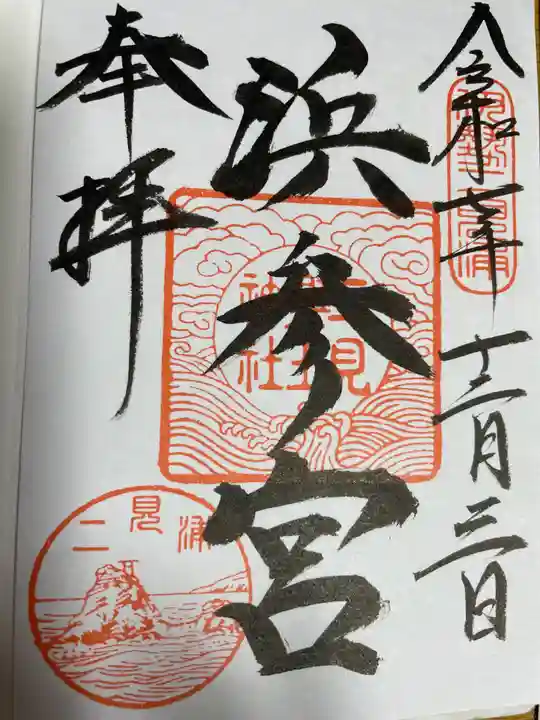 令和七年 十二月三日
伊勢二見浦
浜参宮
二見興玉神社
奉拝
二見浦